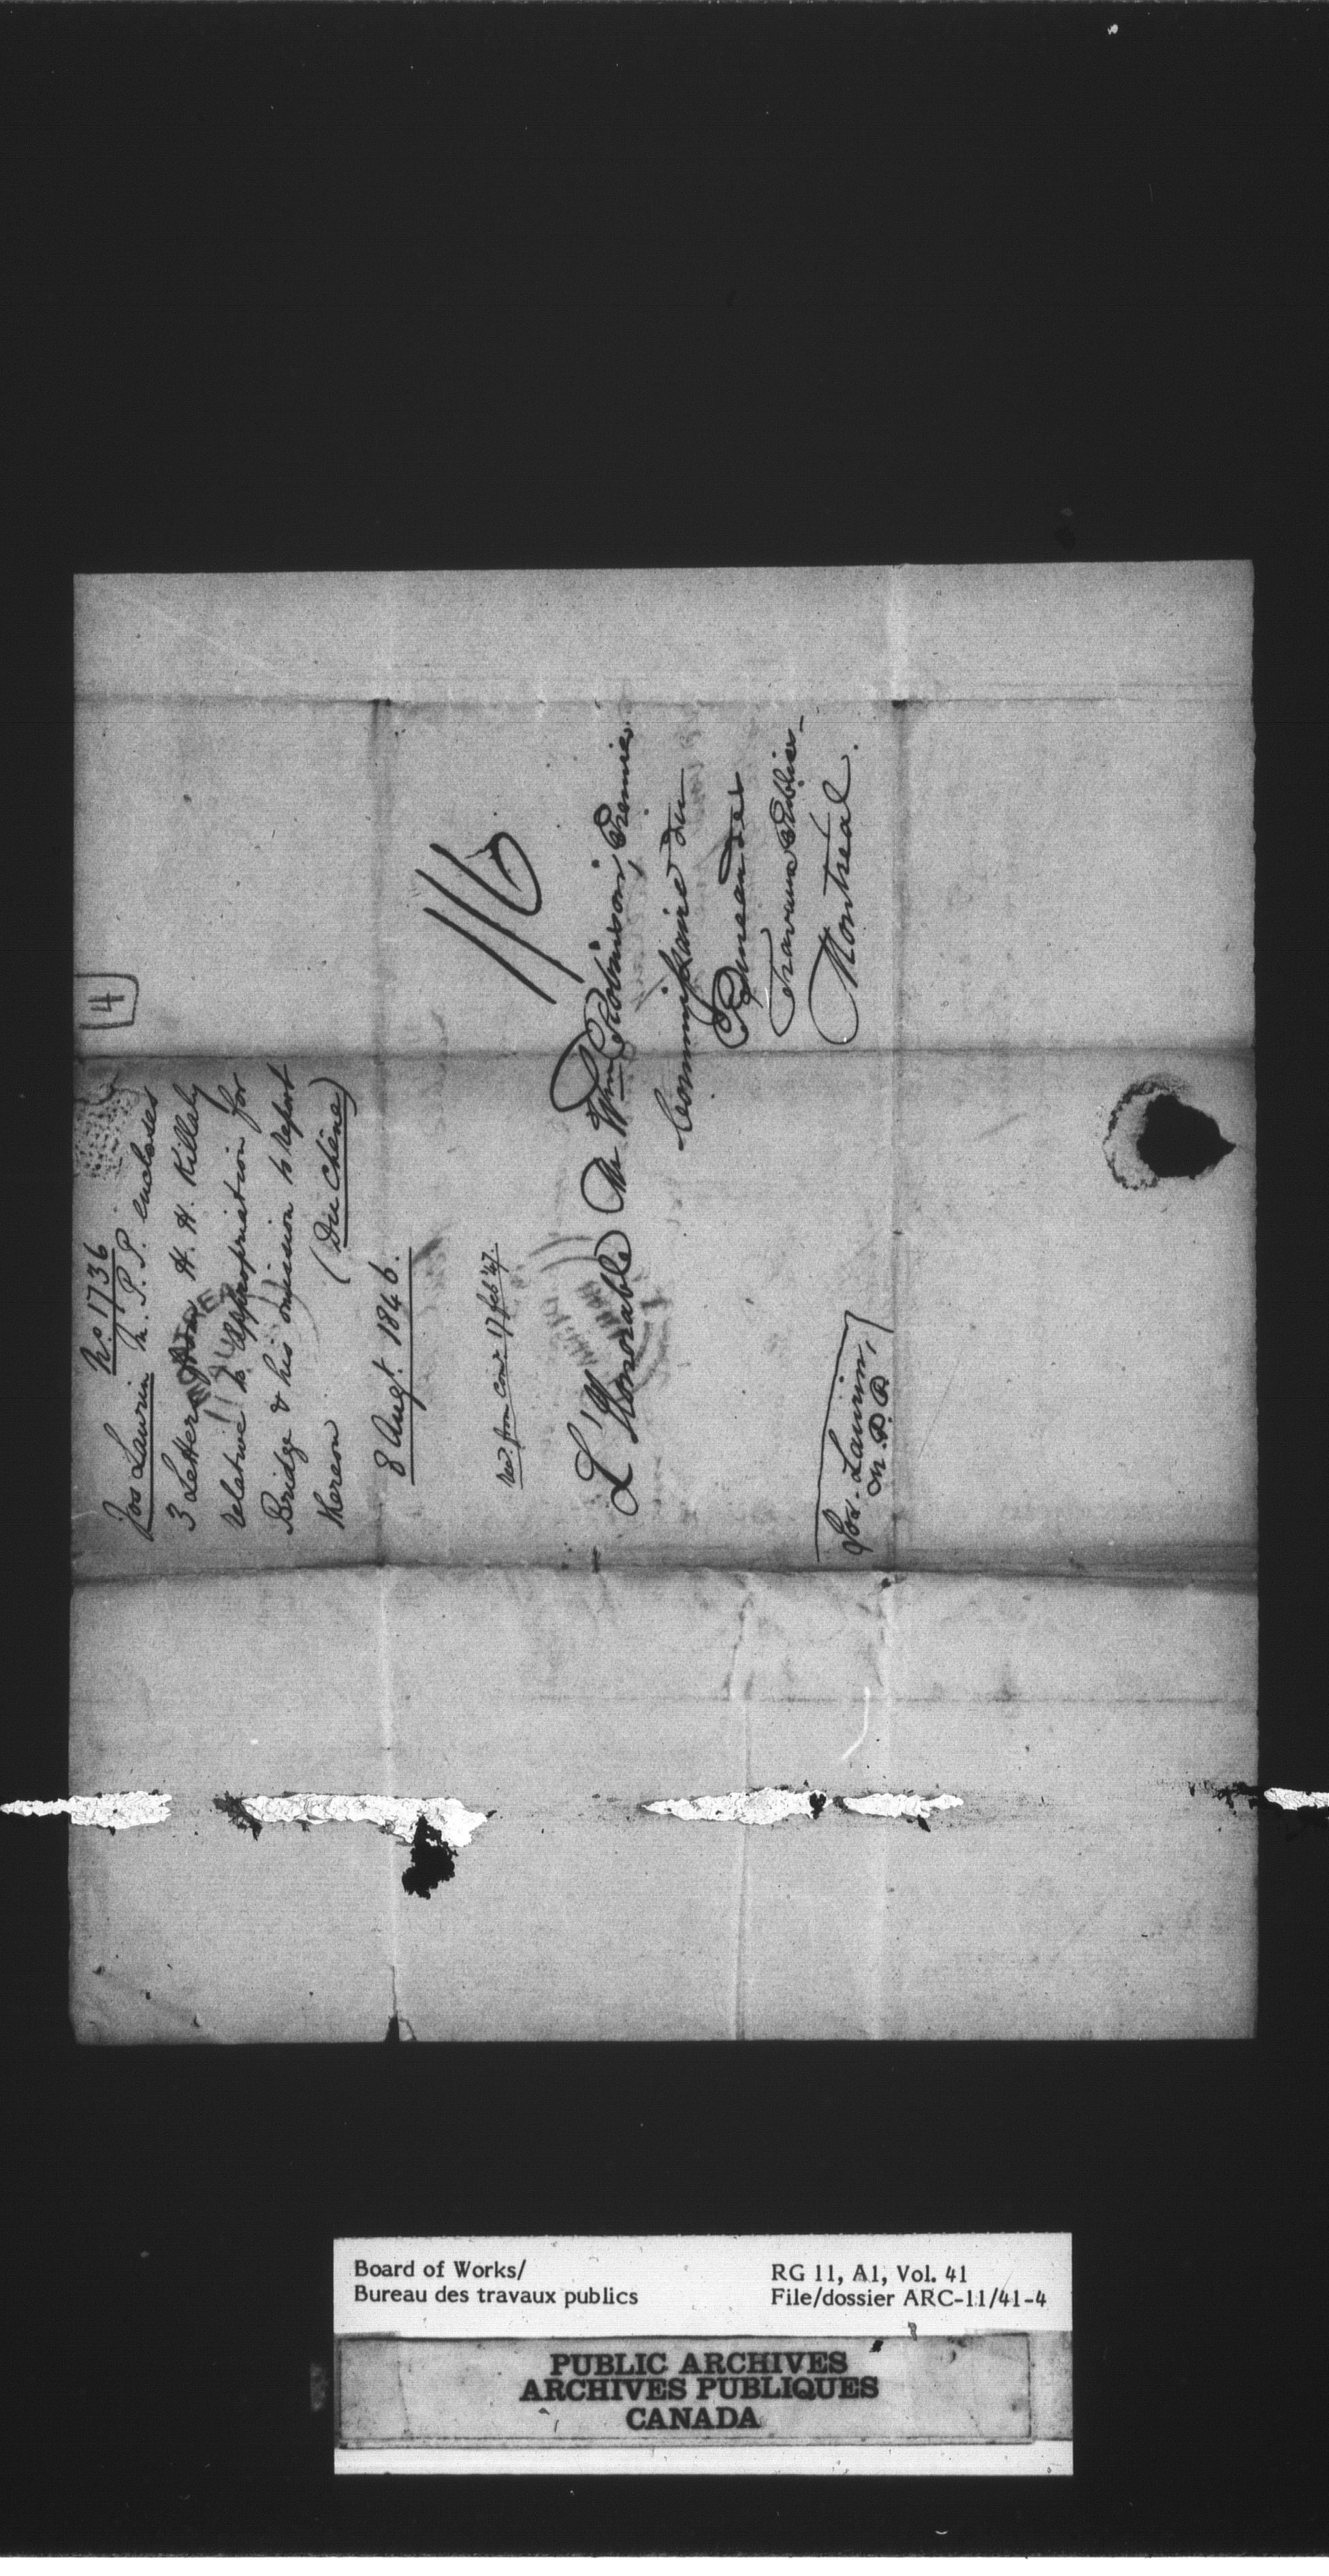 4
No. 1736
Jos Laurin M.P.P. encloses
3 Letters from H. H. Killaly
relative to appropriation for
Bridge & his omission to report
thereon (Du Chêne)
8 Augt. 1846.
Recd. from Comr. 17 feb '47.
1/6
L'Honorable Mr Wm Robinson, Premier
Commissaire du
Bureau des
Travaux Publics-
Montreal.
Jos. Laurin,
M.P.P.
Board of Works/
Bureau des travaux publics
RG 11, A1, Vol. 41
File/dossier ARC-11/41-4
PUBLIC ARCHIVES
ARCHIVES PUBLIQUES
CANADA